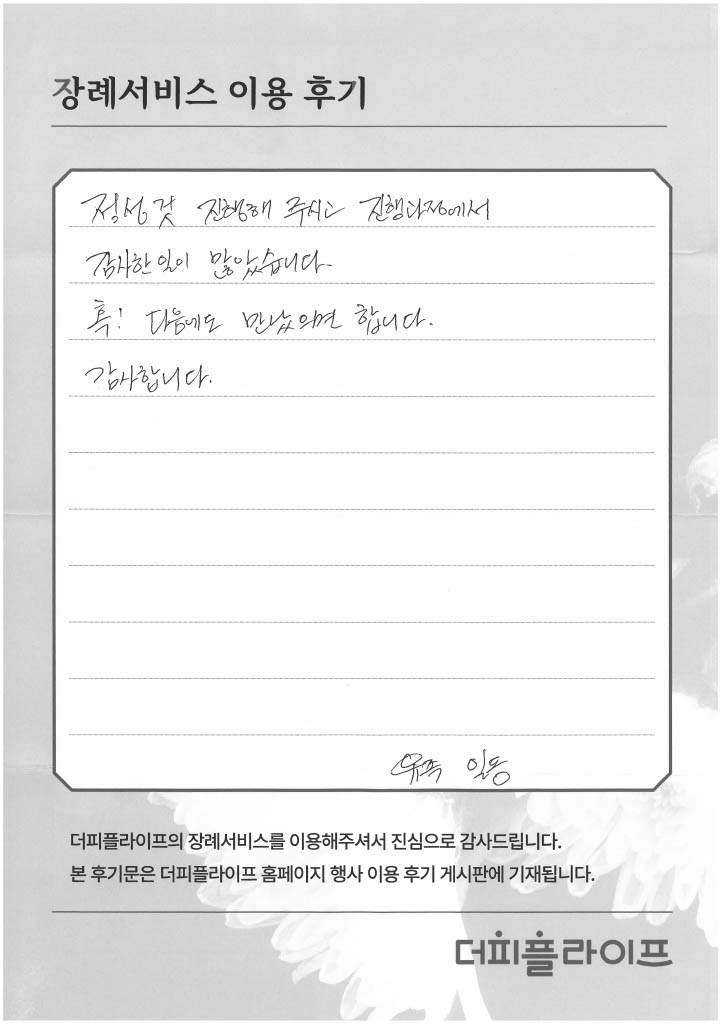 장례서비스 이용 후기
정성껏 진행해 주시고 진행과정에서
감사한일이 많았습니다.
혹! 다음에도 만났으면 합니다.
감사합니다.
유족 일동
더피플라이프의 장례서비스를 이용해주셔서 진심으로 감사드립니다.
본 후기문은 더피플라이프 홈페이지 행사 이용 후기 게시판에 기재됩니다.
더피플라이프